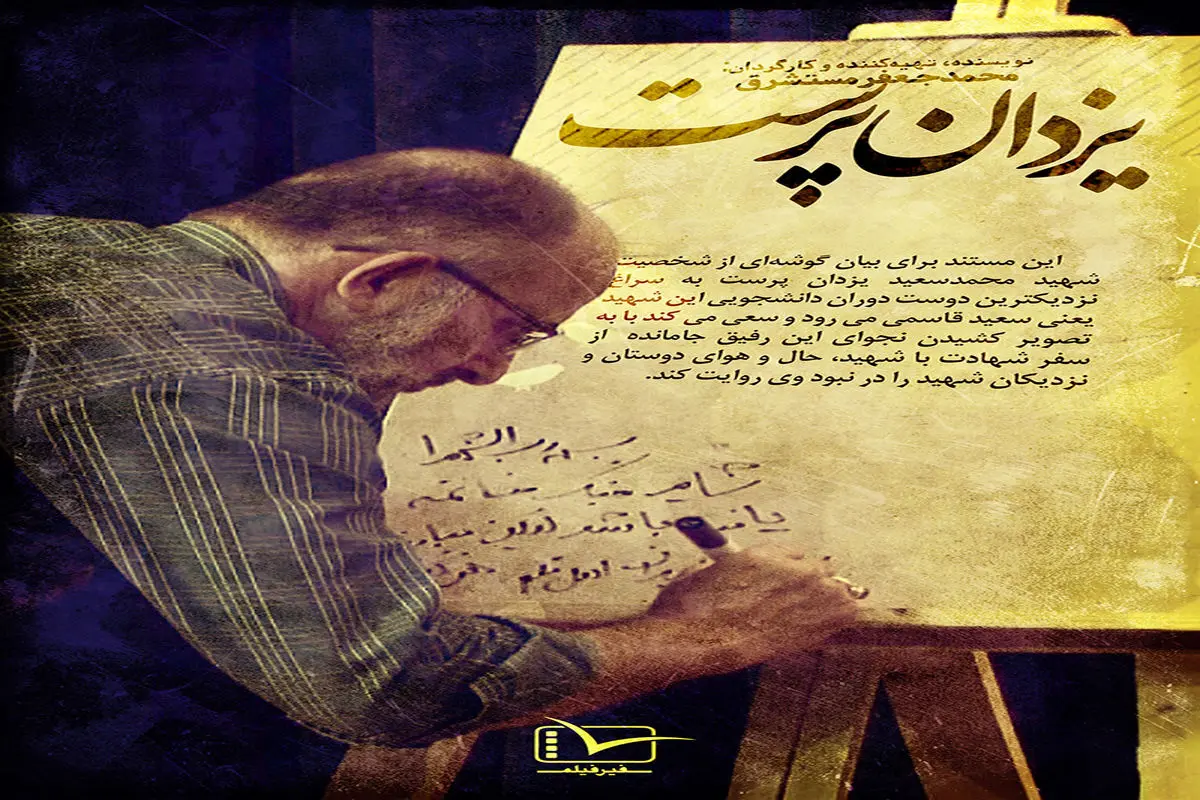 نویسنده، تهیه‌کننده و کارگردان:
محمدجعفر مستشرق
یزدان پرست
این مستند برای بیان گوشه‌ای از شخصیت
شهید محمدسعید یزدان پرست به سراغ
نزدیکترین دوست دوران دانشجویی این شهید
یعنی سعید قاسمی می رود و سعی می کند با به
تصویر کشیدن نجوای این رفیق جامانده از
سفر شهادت با شهید، حال و هوای دوستان و
نزدیکان شهید را در نبود وی روایت کند.
شاید جنگ خاتمه
یافته باشد اولین
اول قلم
فیرفیلم